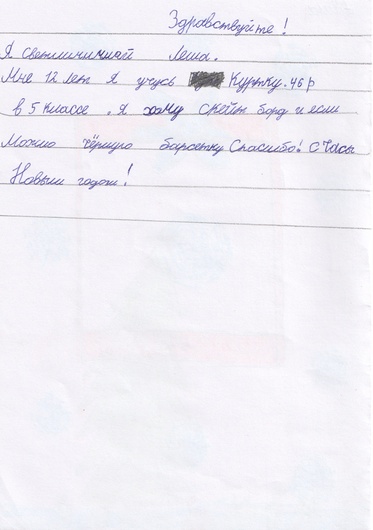 Здравствуйте!
Я Светличимай Леша.
Мне 12 лет Я учусь Куртку. 46 р
в 5 классе. Я хочу Скейт борд и если
Можно чёрную барсетку Спасибо! С Часы
Новым годом!